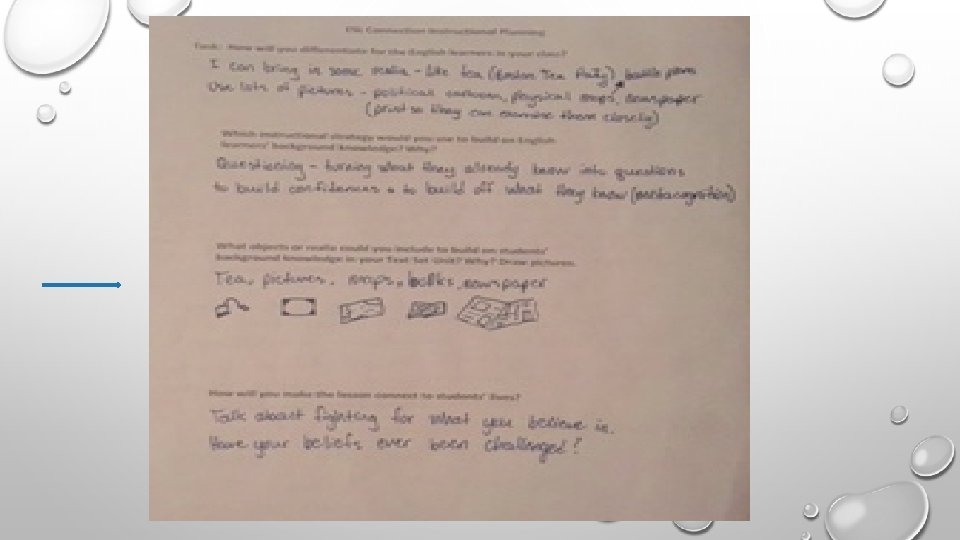 Connection Instructional Planning
Task: How will you differentiate for the English learners in your class?
I can bring in some realia - like tea (Boston Tea Party), battle plans
Use lots of pictures - political cartoons, physical maps, newspaper
(print so they can examine them closely)
Which instructional strategy would you use to build on English
learners' background knowledge? Why?
Questioning - turning what they already know into questions
to build confidence & to build off what they know (metacognition)
What objects or realia could you include to build on students'
background knowledge in your Text Set Unit? Why? Draw pictures.
Tea, pictures, maps, books, newspaper
How will you make the lesson connect to students' lives?
Talk about fighting for what you believe in.
Have your beliefs ever been challenged?